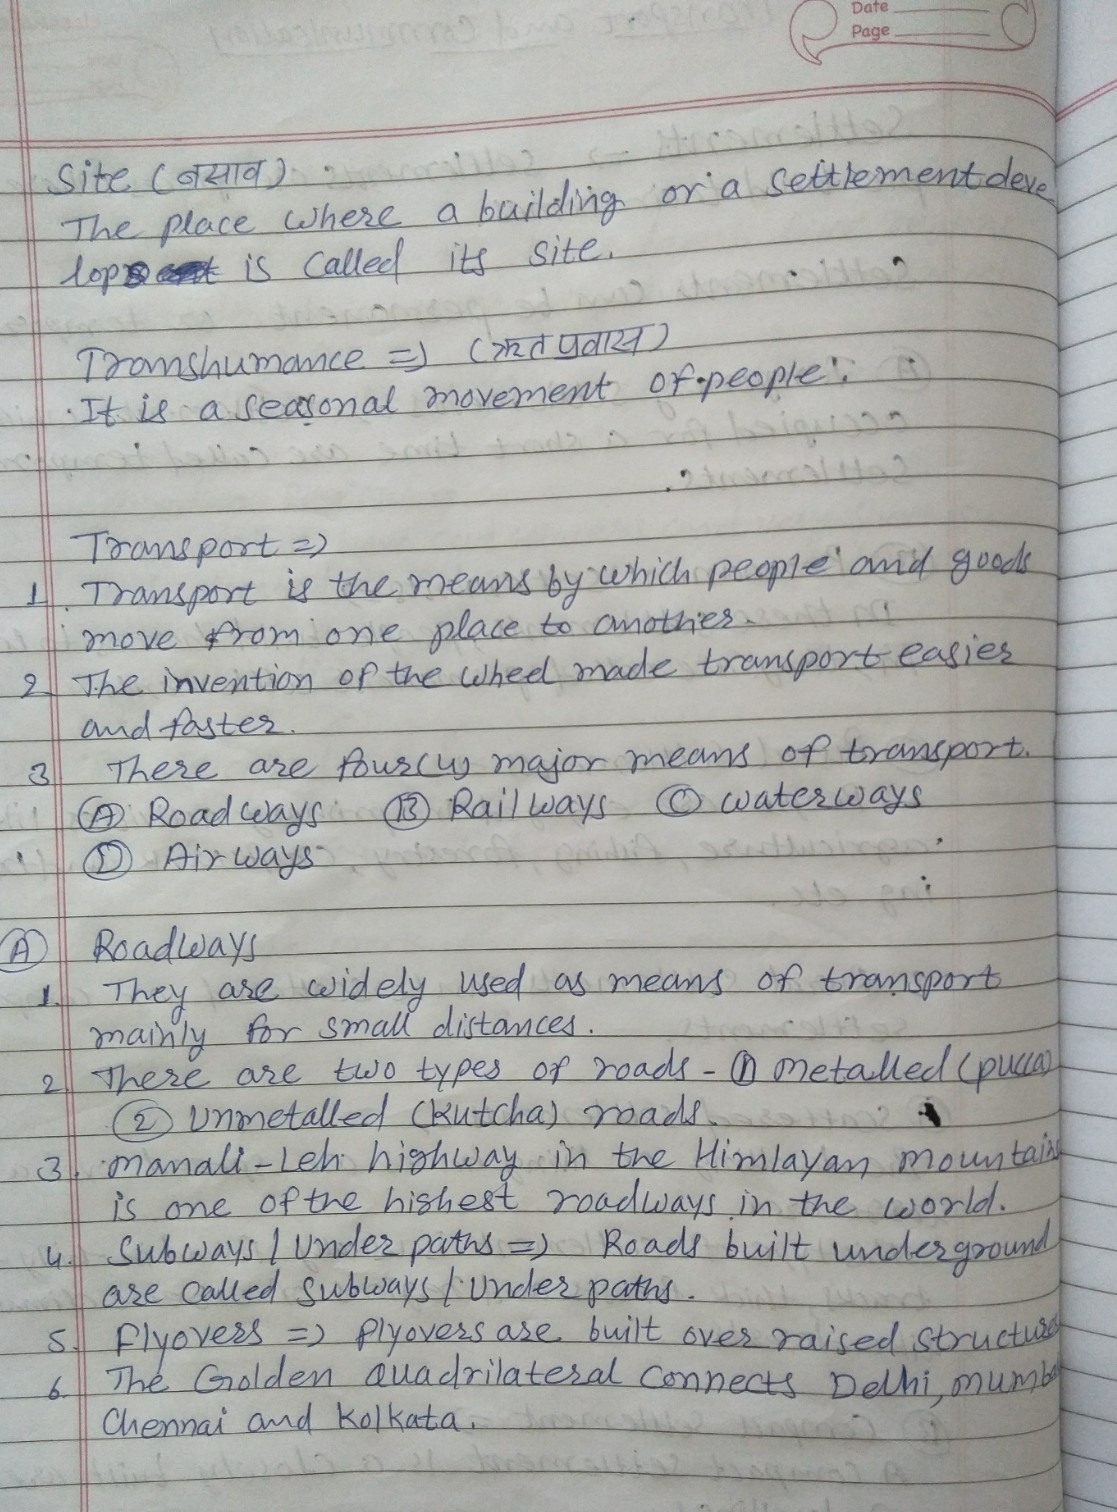 Date
Page
Site (बसाव)
The place where a building or a settlement deve
lop is called its site.
Transhumance => (ऋतु प्रवास)
It is a seasonal movement of people.
Transport =>
1. Transport is the means by which people and goods
move from one place to another.
2. The invention of the wheel made transport easier
and faster.
3. There are four(4) major means of transport.
(A) Roadways (B) Railways (C) Waterways
(D) Airways
(A) Roadways
1. They are widely used as means of transport
mainly for small distances.
2. There are two types of roads - (1) Metalled (pucca)
(2) Unmetalled (kutcha) roads.
3. Manali-Leh highway in the Himlayan mountains
is one of the highest roadways in the world.
4. Subways / Under paths => Roads built underground
are called subways / Under paths.
5. Flyovers => Flyovers are built over raised structure
6. The Golden Quadrilateral connects Delhi, Mumba
Chennai and Kolkata.